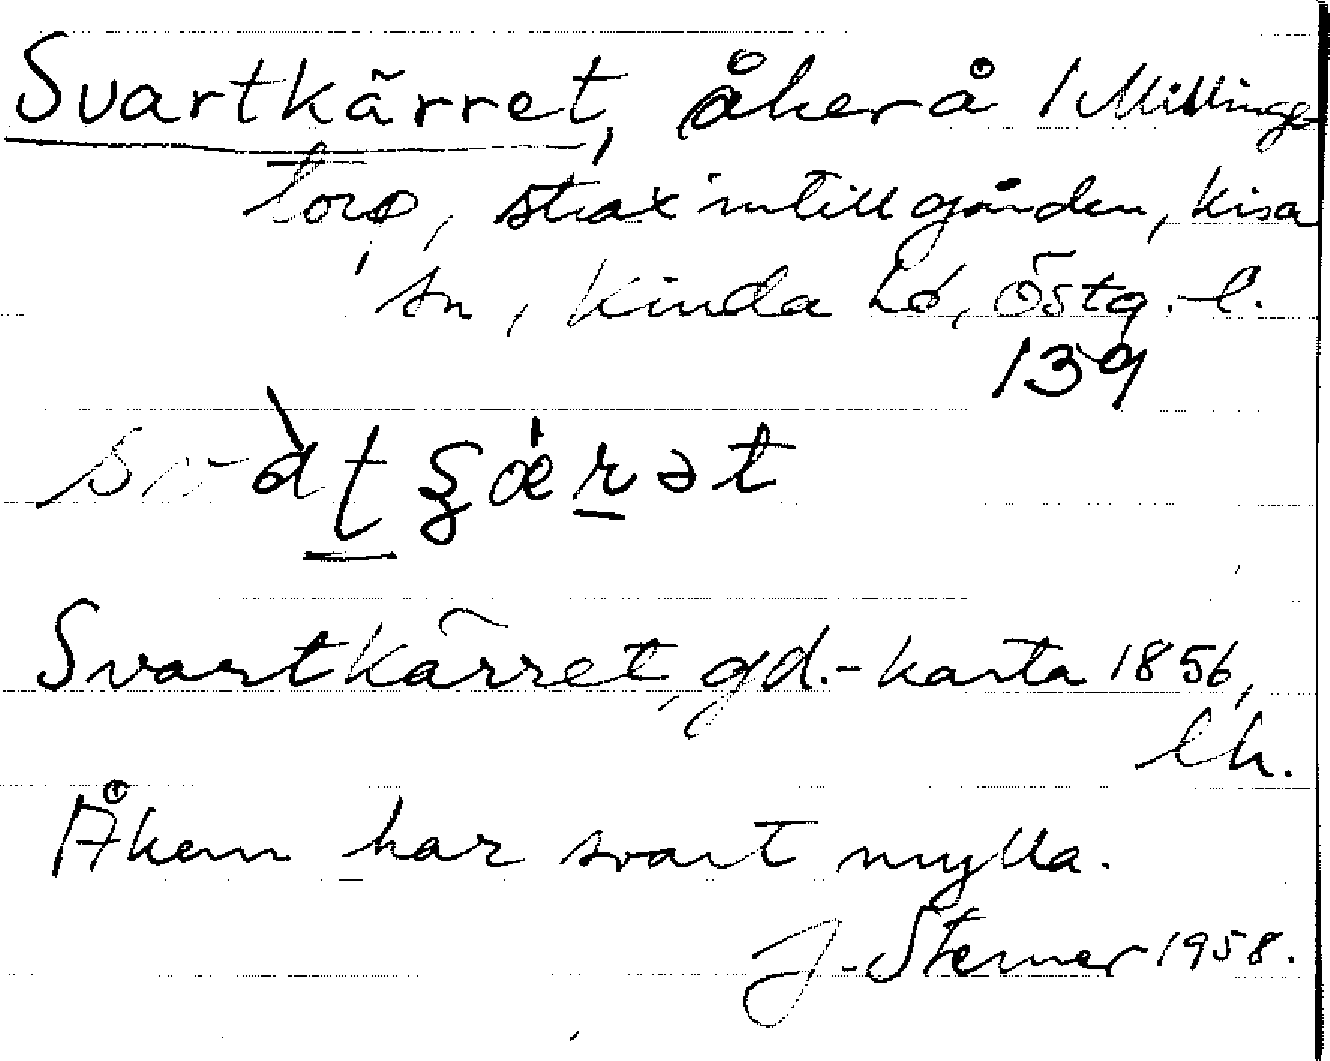 Svartkärret, åker å 1 Millinge
torp, strax intill gården, Kisa
sn, Kinda hd, Östg. l.
139
Svartkärret, gd.-karta 1856,
lh.
Åkern har svart mylla.
J. Sterner 1958.